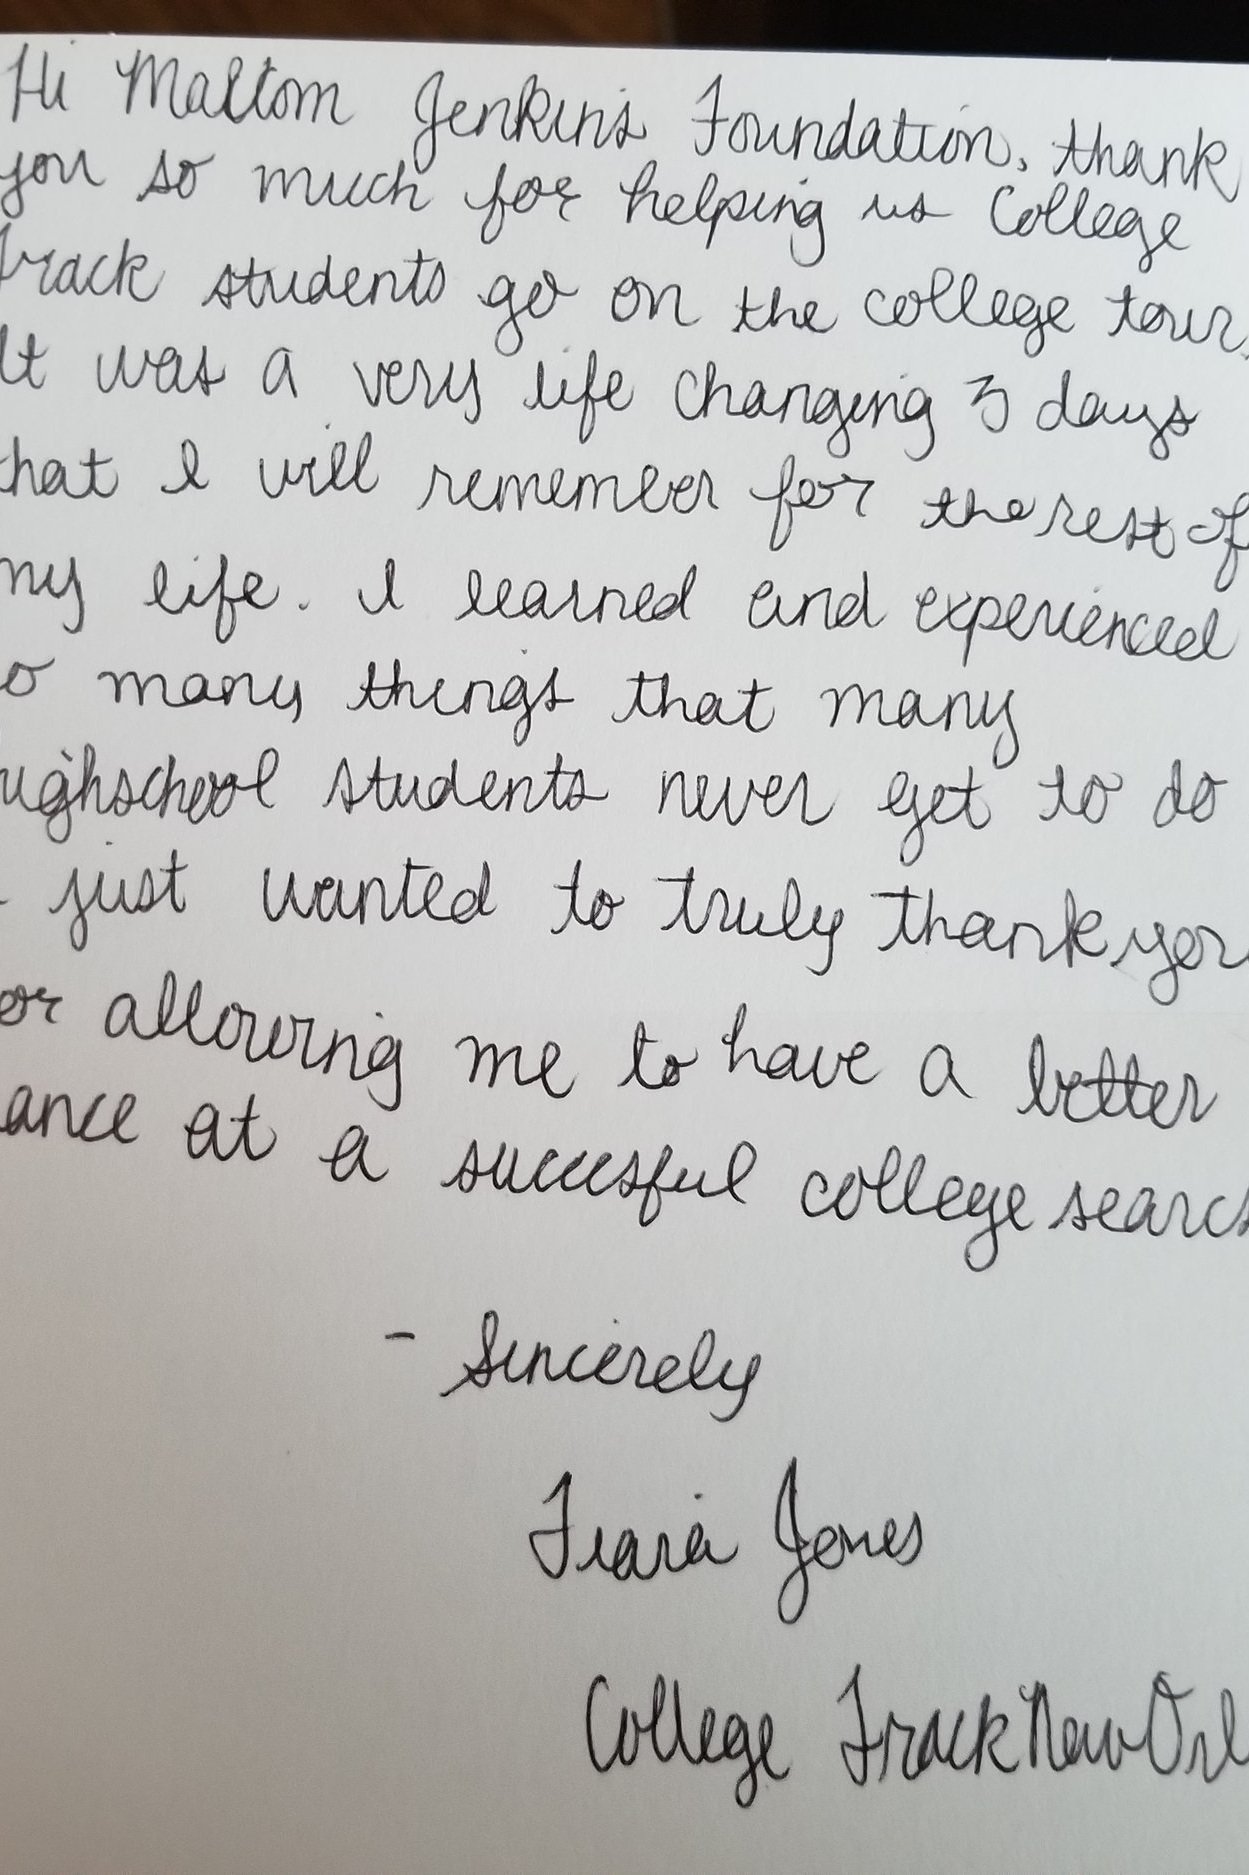 Hi Maltom Jenkins Foundation, thank
you so much for helping us College
Track students go on the college tour.
It was a very life changing 3 days
that I will remember for the rest of
my life. I learned and experienced
o many things that many
highschool students never get to do
I just wanted to truly thank you
or allowing me to have a better
ance at a succesful college search
- Sincerely
Tiara Jones
College Track New Orl